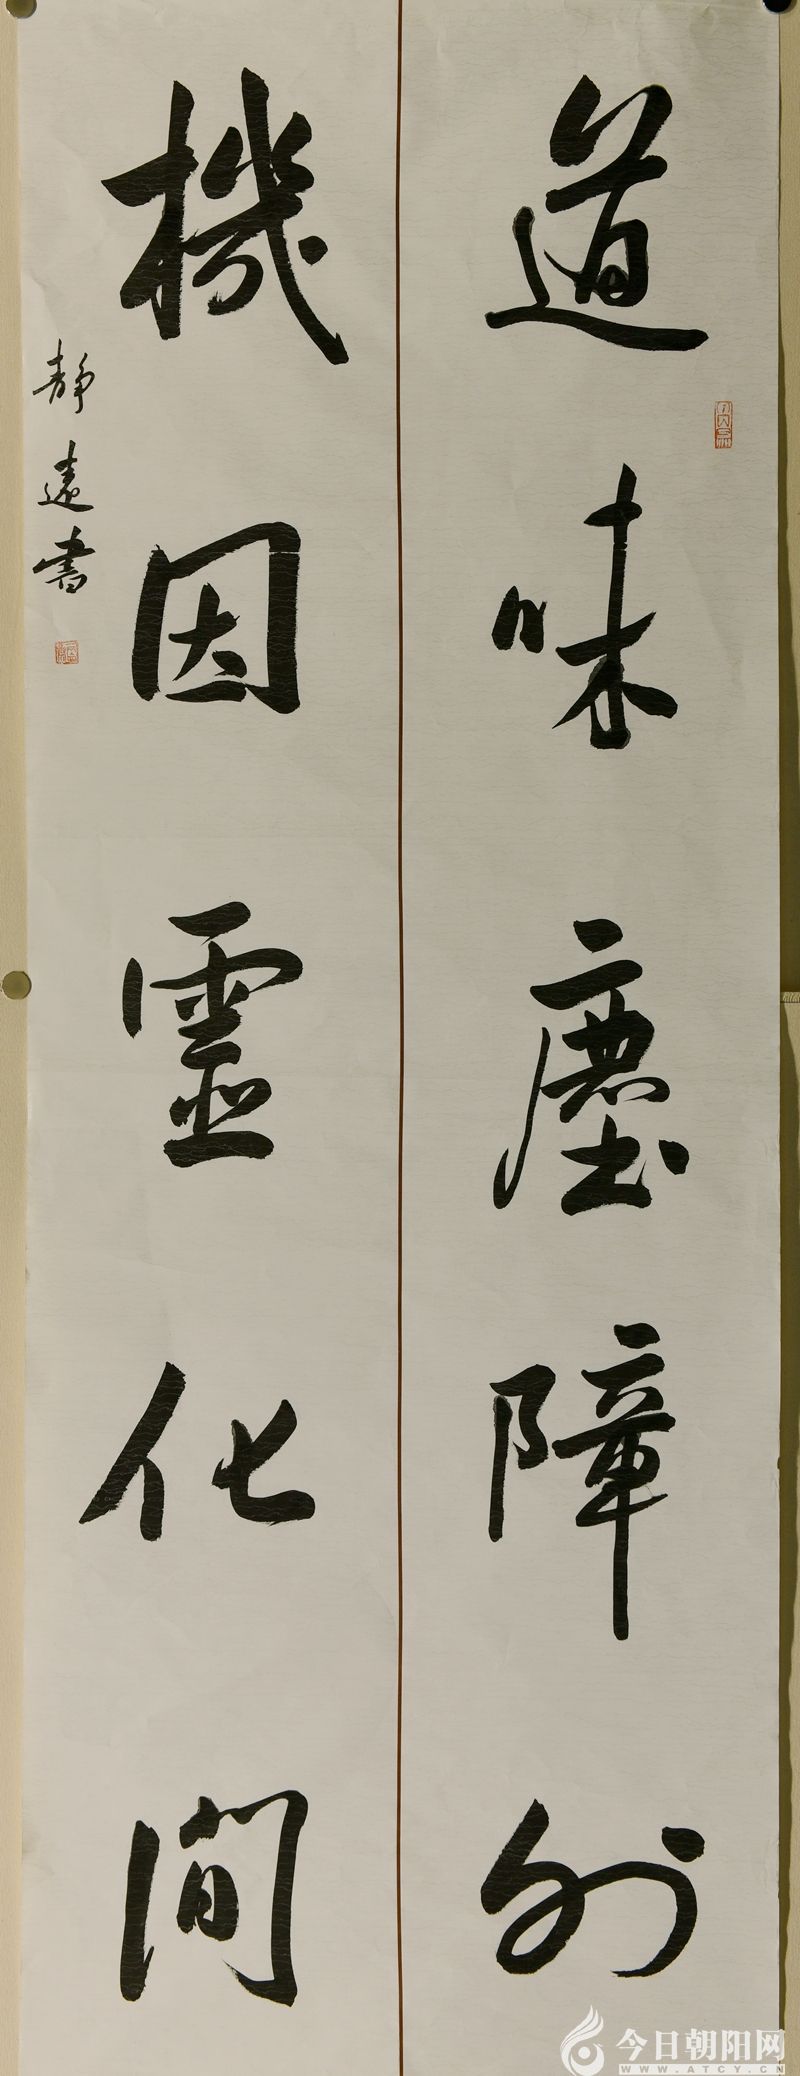 道味塵障外
機因靈化間
静遠書
今日朝阳网
WWW.ATCY.CN